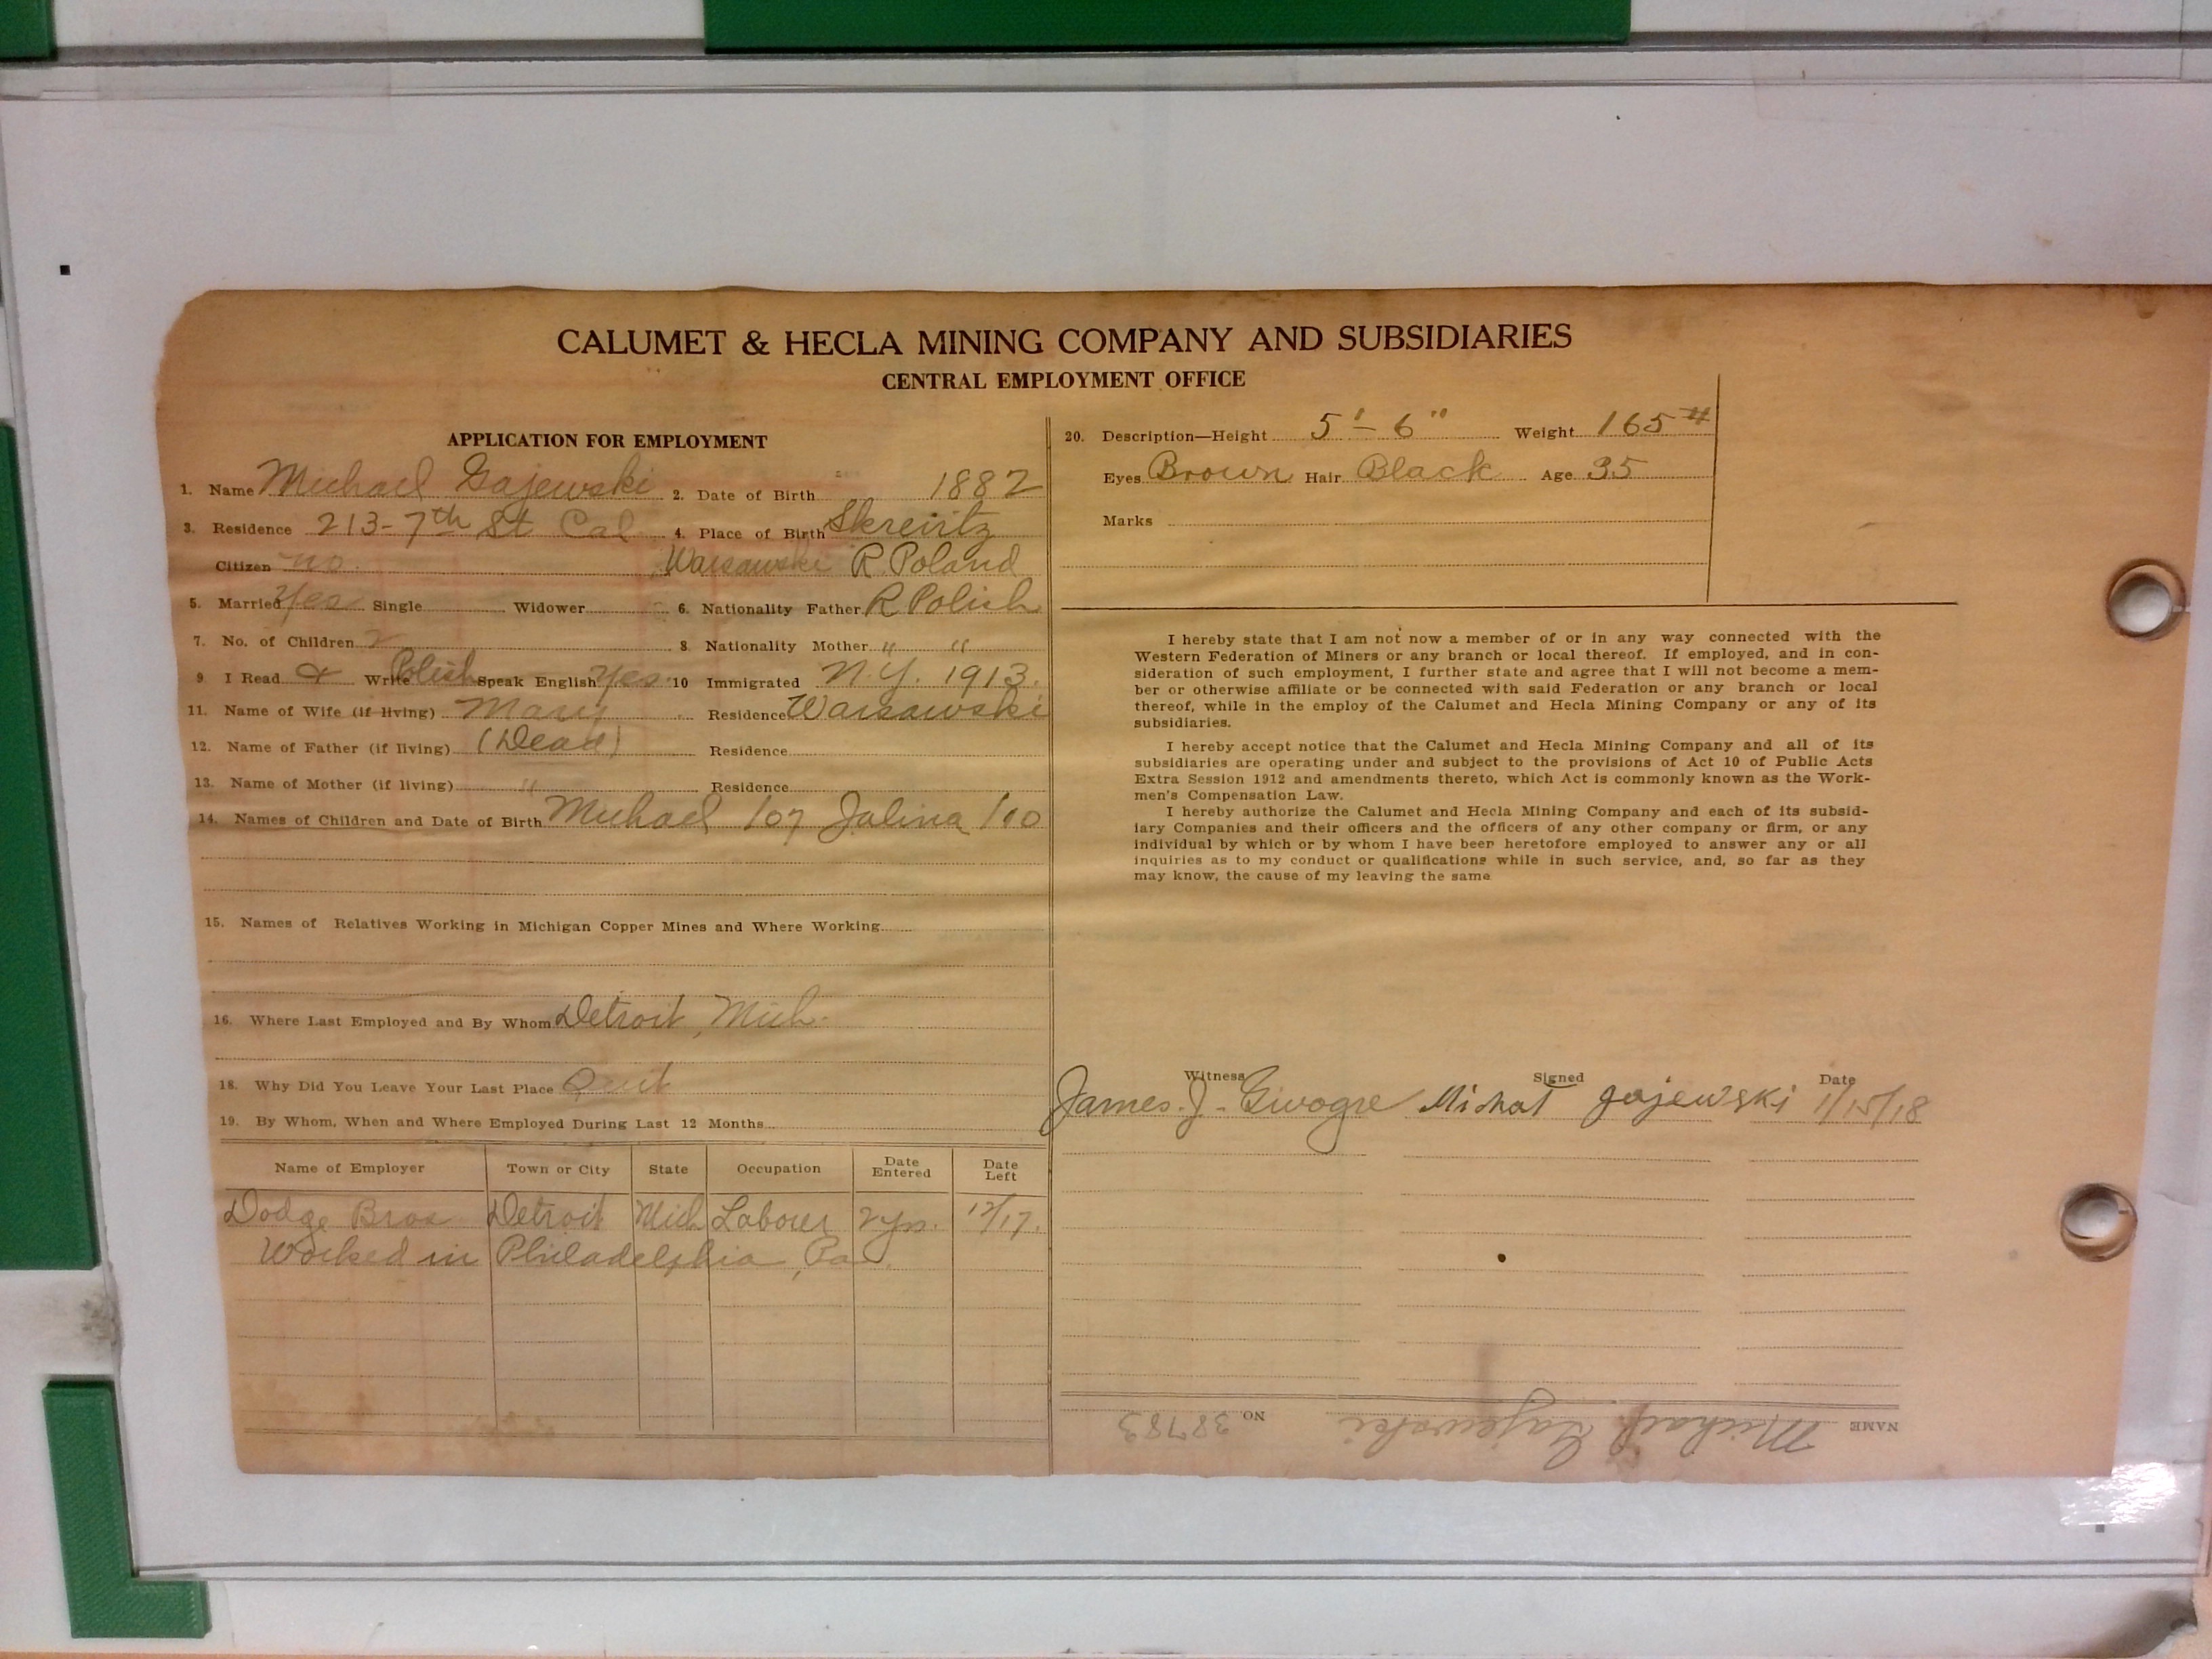 CALUMET & HECLA MINING COMPANY AND SUBSIDIARIES
CENTRAL EMPLOYMENT OFFICE
APPLICATION FOR EMPLOYMENT
1. Name Michael Gajewski 2. Date of Birth 1882
3. Residence 213-7th St Cal 4. Place of Birth
Citizen no. Warsawski R. Poland
5. Married Yes Single Widower 6. Nationality Father R Polish
7. No. of Children 2 8 Nationality Mother " "
9 I Read & Write Polish Speak English Yes 10 Immigrated N.Y. 1913.
11. Name of Wife (if living) Mary Residence Warsawski
12. Name of Father (if living) (Dead) Residence
13. Name of Mother (if living) " Residence
14. Names of Children and Date of Birth Michael /07 Jalina /10
15. Names of Relatives Working in Michigan Copper Mines and Where Working
16. Where Last Employed and By Whom Detroit, Mich.
18. Why Did You Leave Your Last Place Quit
19. By Whom, When and Where Employed During Last 12 Months
Name of Employer Town or City State Occupation Date Entered Date Left
Dodge Bros Detroit Mich Laborer 2 yrs. 12/17.
Worked in Philadelphia, Pa.
20. Description—Height 5'-6" Weight 165#
Eyes Brown Hair Black Age 35
Marks
I hereby state that I am not now a member of or in any way connected with the
Western Federation of Miners or any branch or local thereof. If employed, and in con-
sideration of such employment, I further state and agree that I will not become a mem-
ber or otherwise affiliate or be connected with said Federation or any branch or local
thereof, while in the employ of the Calumet and Hecla Mining Company or any of its
subsidiaries.
I hereby accept notice that the Calumet and Hecla Mining Company and all of its
subsidiaries are operating under and subject to the provisions of Act 10 of Public Acts
Extra Session 1912 and amendments thereto, which Act is commonly known as the Work-
men's Compensation Law.
I hereby authorize the Calumet and Hecla Mining Company and each of its subsid-
iary Companies and their officers and the officers of any other company or firm, or any
individual by which or by whom I have been heretofore employed to answer any or all
inquiries as to my conduct or qualifications while in such service, and, so far as they
may know, the cause of my leaving the same
Witness Signed Date
James. J. Michat gajewski 1/15/18
NAME Michael Gajewski NO. 38783